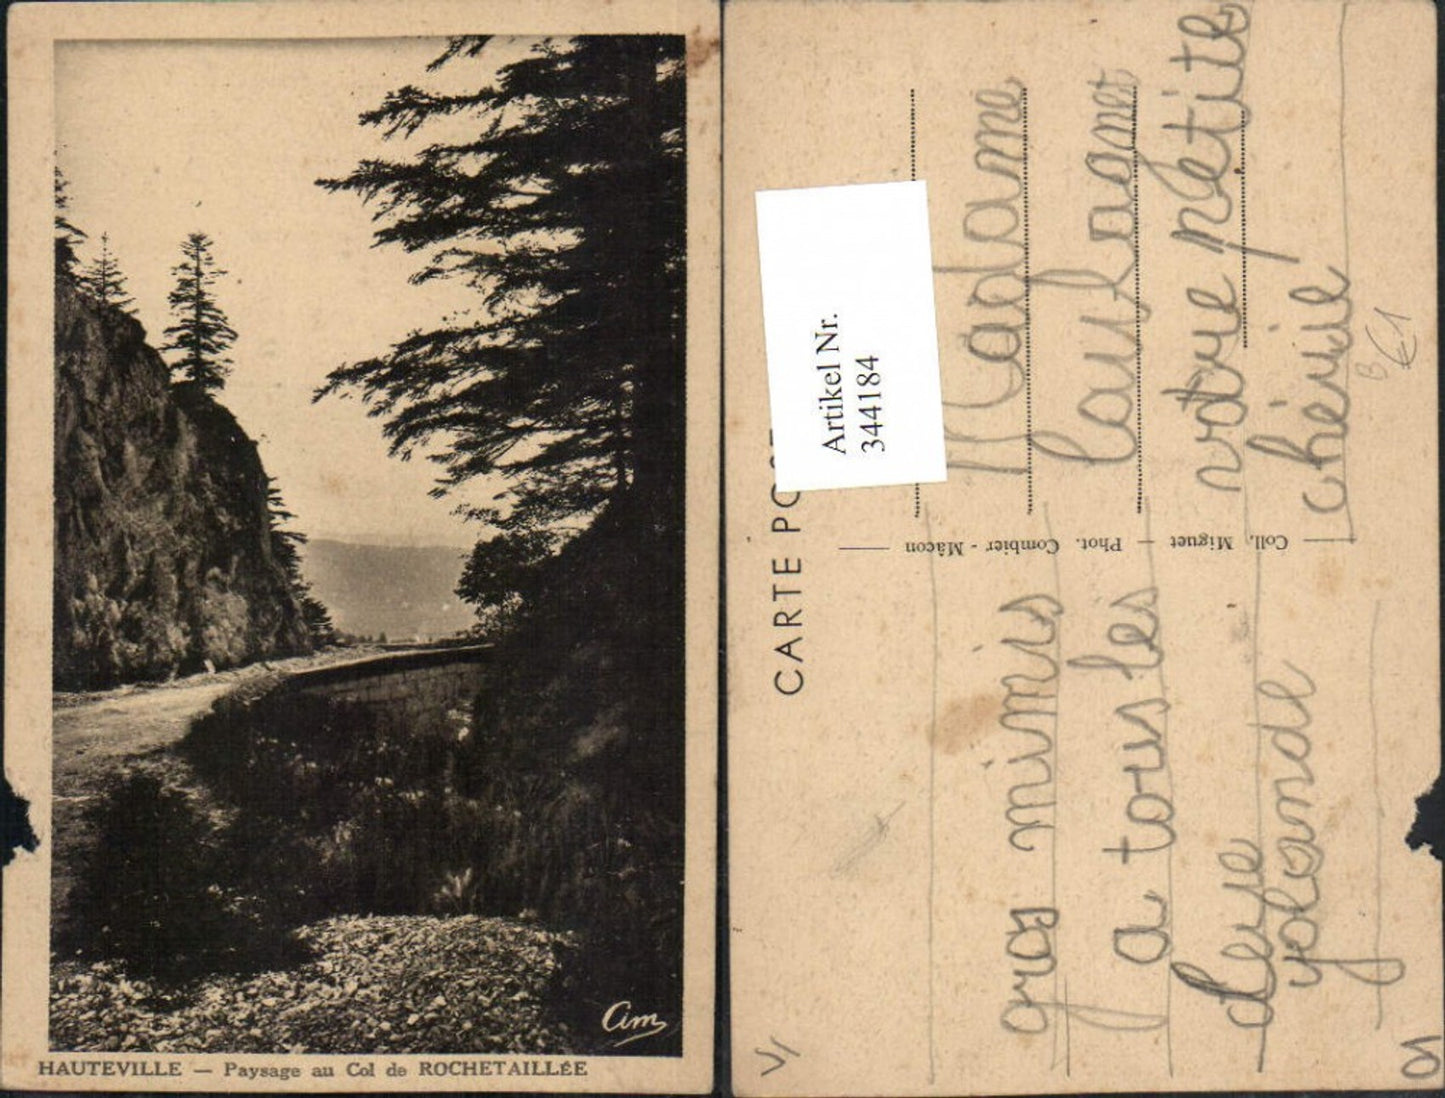 HAUTEVILLE — Paysage au Col de ROCHETAILLÉE
Cim
CARTE PO
Artikel Nr.
344184
Coll. Miguet — Phot. Combier - Mâcon
gros mimis
a tous les
yolande
Madame
votre petite
chérie
€1